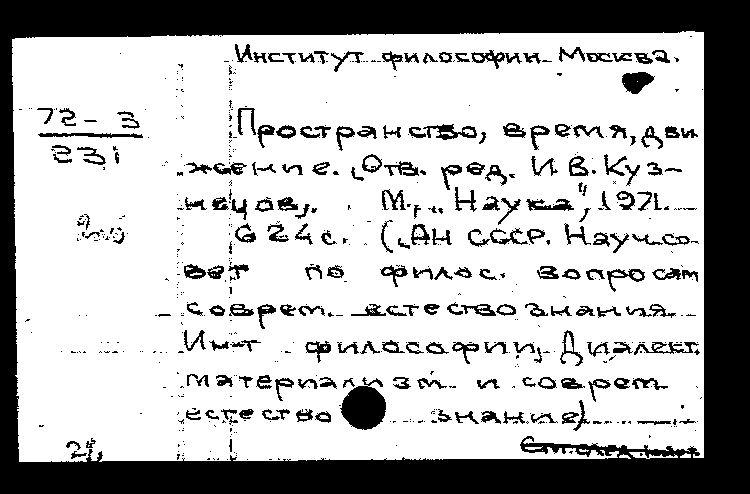 Институт философии. Москва.
72-3
231
Пространство, время, дви
жение. (Отв. ред. И.В. Куз-
нецов). М., "Наука", 1971.
624 с. (АН СССР. Науч. со-
вет по филос. вопросам
соврем. естествознания.
Ин-т философии, Диалект.
материализм и соврем
естествознание)
24,
См. след. карт.